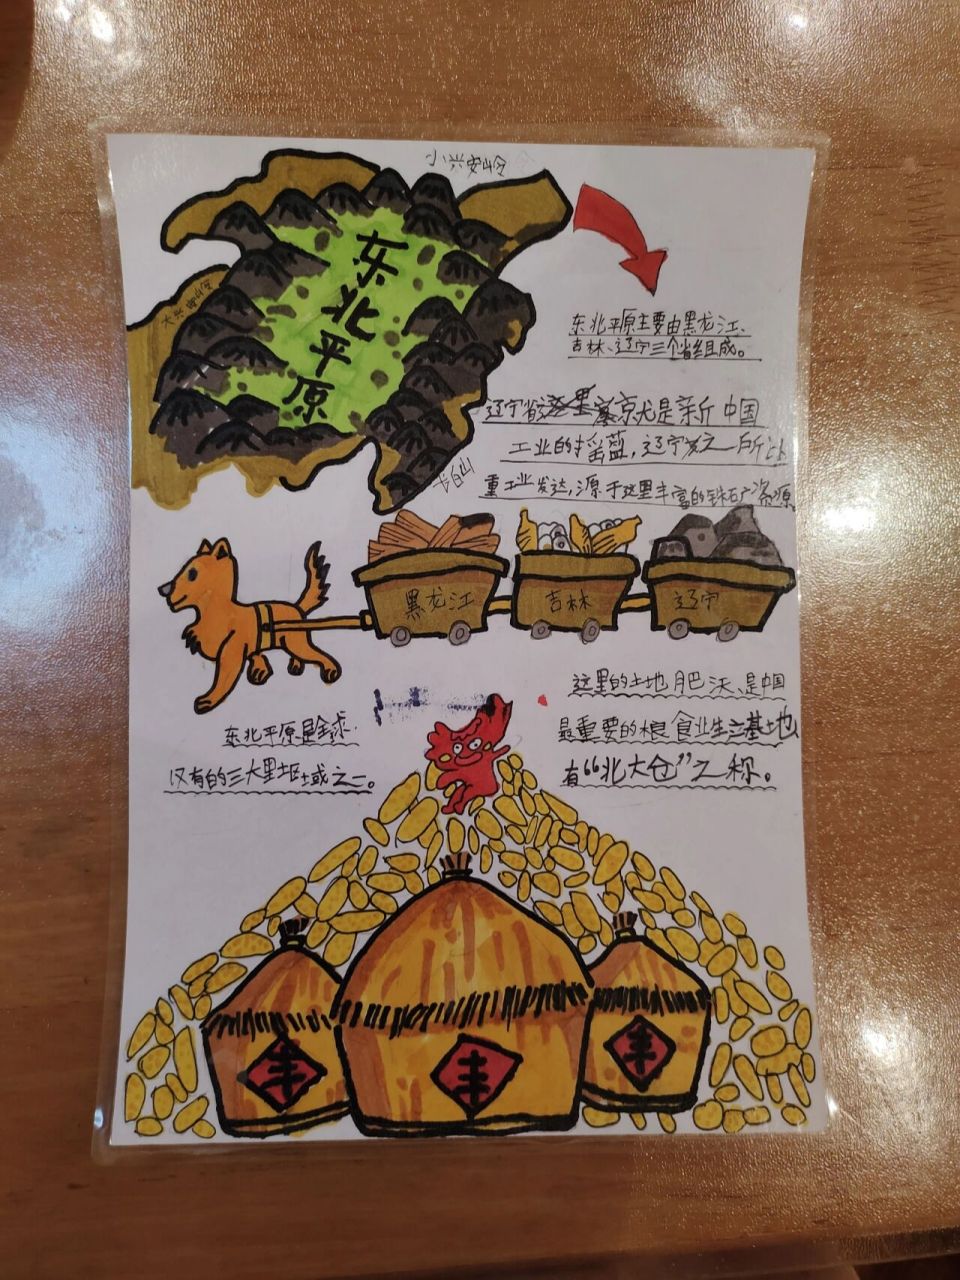 小兴安岭
大兴安岭
东北平原
长白山
东北平原主要由黑龙江、
吉林、辽宁三个省组成。
辽宁省 尤是新中国
工业的摇蓝，辽宁 之所以
重工业发达，源于这里丰富的铁矿资源
黑龙江
吉林
辽宁
东北平原是全球
仅有的三大黑土域之一。
这里的土地肥沃、是中国
最重要的粮食业生产基地
有“北大仓”之称。
丰
丰
丰